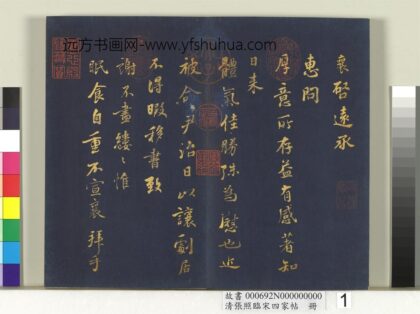 远方书画网-www.yfshuhua.com
襄啓遠承
惠問
厚意所存益有感著知
日来
體氣佳勝殊為慰也近
被命尹洛日以讓劇居
不得暇移書致
謝不盡縷々惟
眠食自重不宣襄拜手
故書 000692N000000000
清張照臨宋四家帖 冊
1